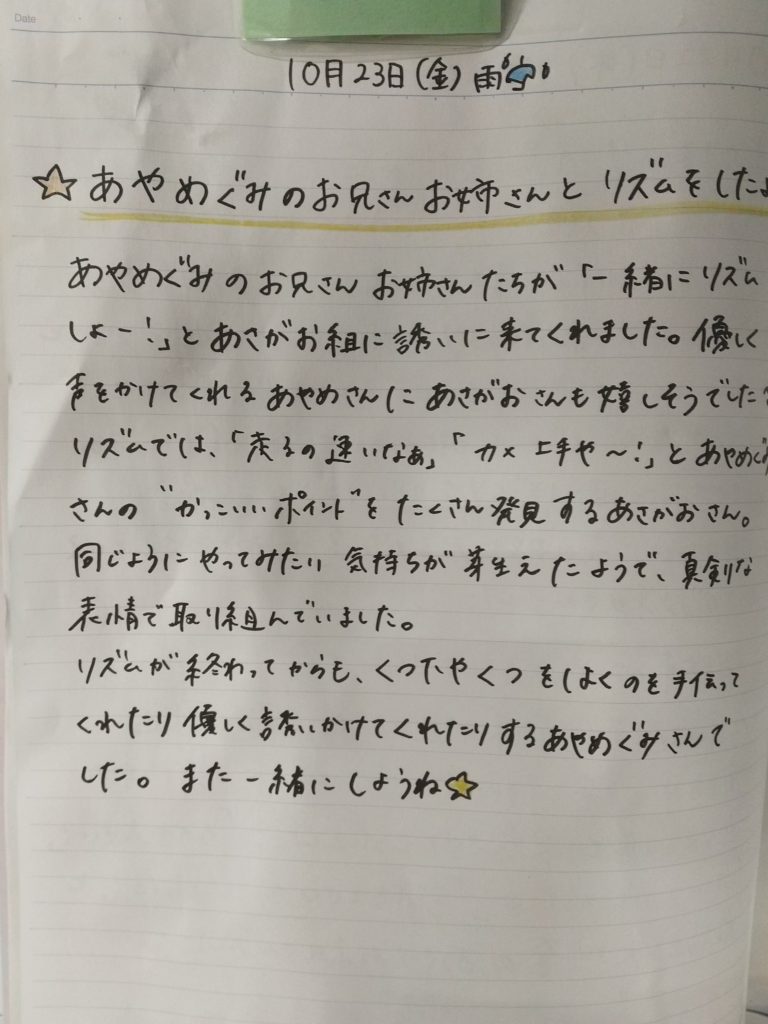 Date
10月23日(金)雨
☆あやめぐみのお兄さんお姉さんとリズムをしたよ
あやめぐみのお兄さんお姉さんたちが「一緒にリズム
しよー!」とあさがお組に誘いに来てくれました。優しく
声をかけてくれるあやめさんにあさがおさんも嬉しそうでした
リズムでは、「走るの速いなぁ」「カメ上手や〜!」とあやめぐみ
さんの"かっこいいポイント"をたくさん発見するあさがおさん。
同じようにやってみたい気持ちが芽生えたようで、真剣な
表情で取り組んでいました。
リズムが終わってからも、くつたやくつをはくのを手伝って
くれたり優しく誘いかけてくれたりするあやめぐみさんで
した。また一緒にしようね☆